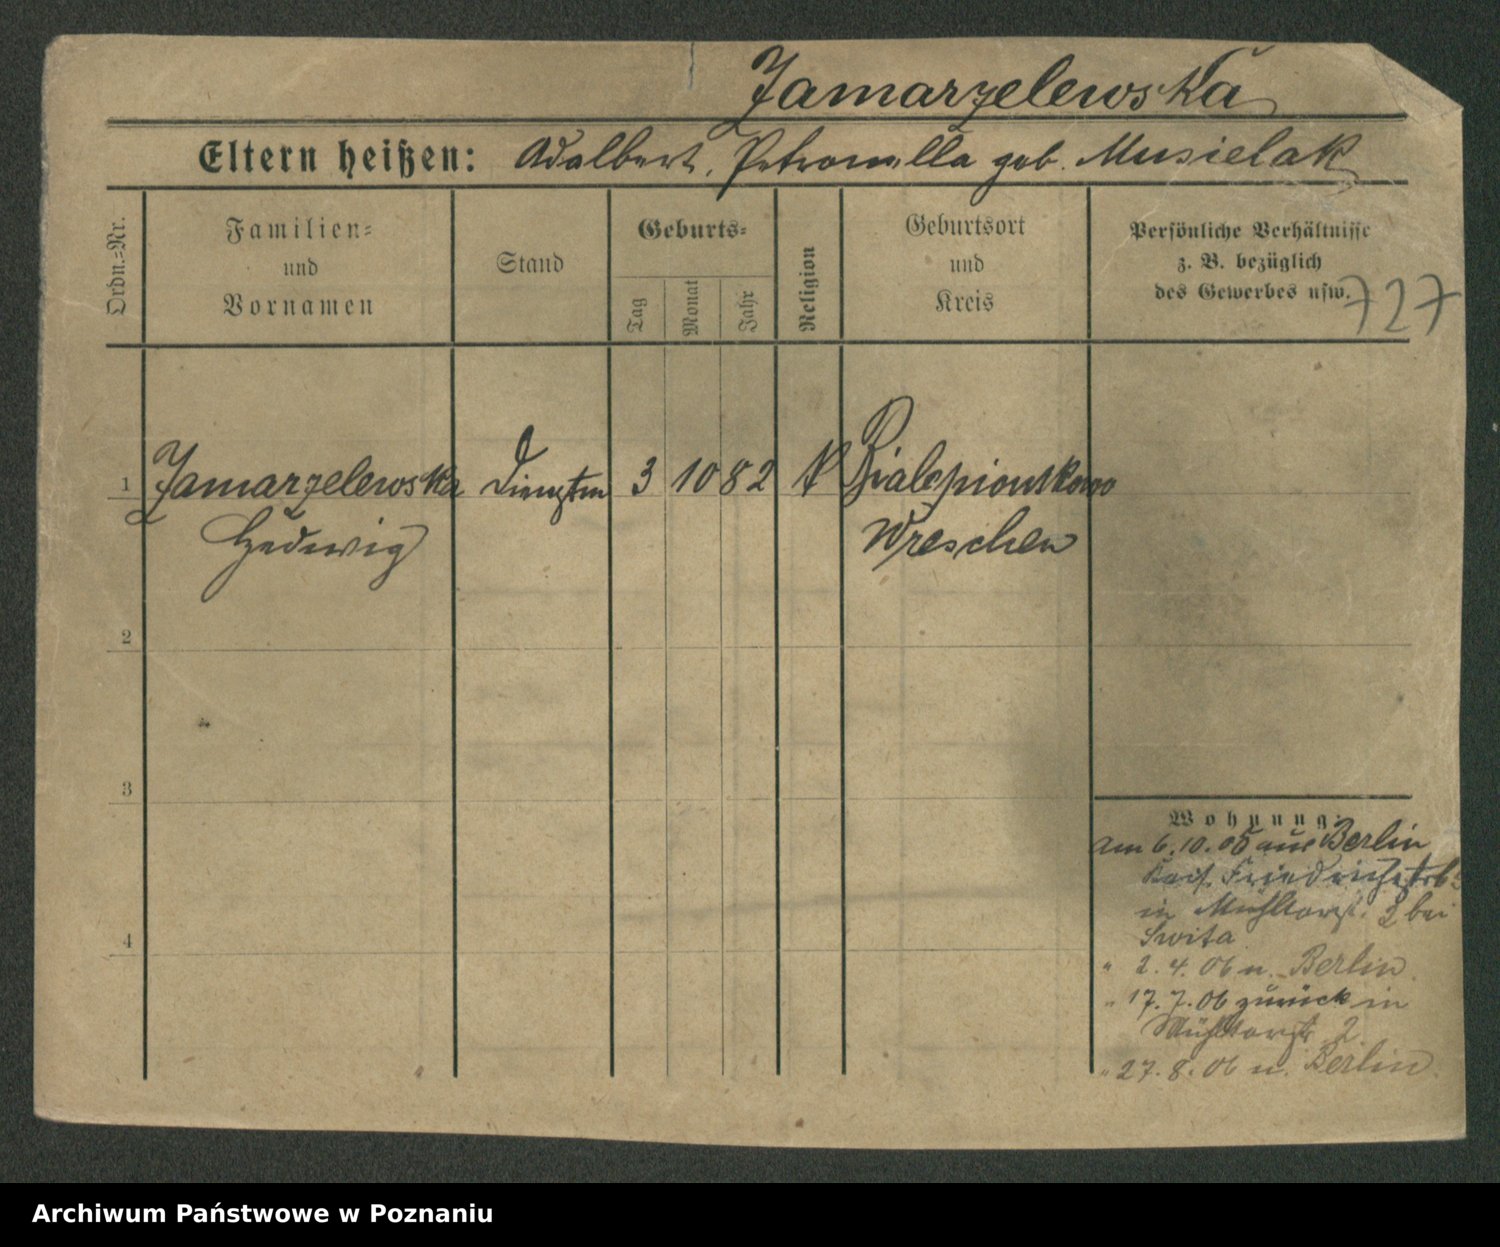 Jamarzelewska
Eltern heißen: Adalbert, Petronella geb. Musielak
Ordn.-Nr.
Familien-
und
Vornamen
Stand
Geburts-
Tag
Monat
Jahr
Religion
Geburtsort
und
Kreis
Persönliche Verhältnisse
z. B. bezüglich
des Gewerbes usw.
727
1 Jamarzelewska 3 10 82 K
Hedwig Wreschen
2
3
4
Wohnung:
am 6.10.05 aus Berlin
Friedrichstr
in Mühltorst. 2 bei
Swita
" 2.4.06 n. Berlin
" 17.7.06 zurück in
Mühltorstr 2
" 27.8.06 n. Berlin.
Archiwum Państwowe w Poznaniu